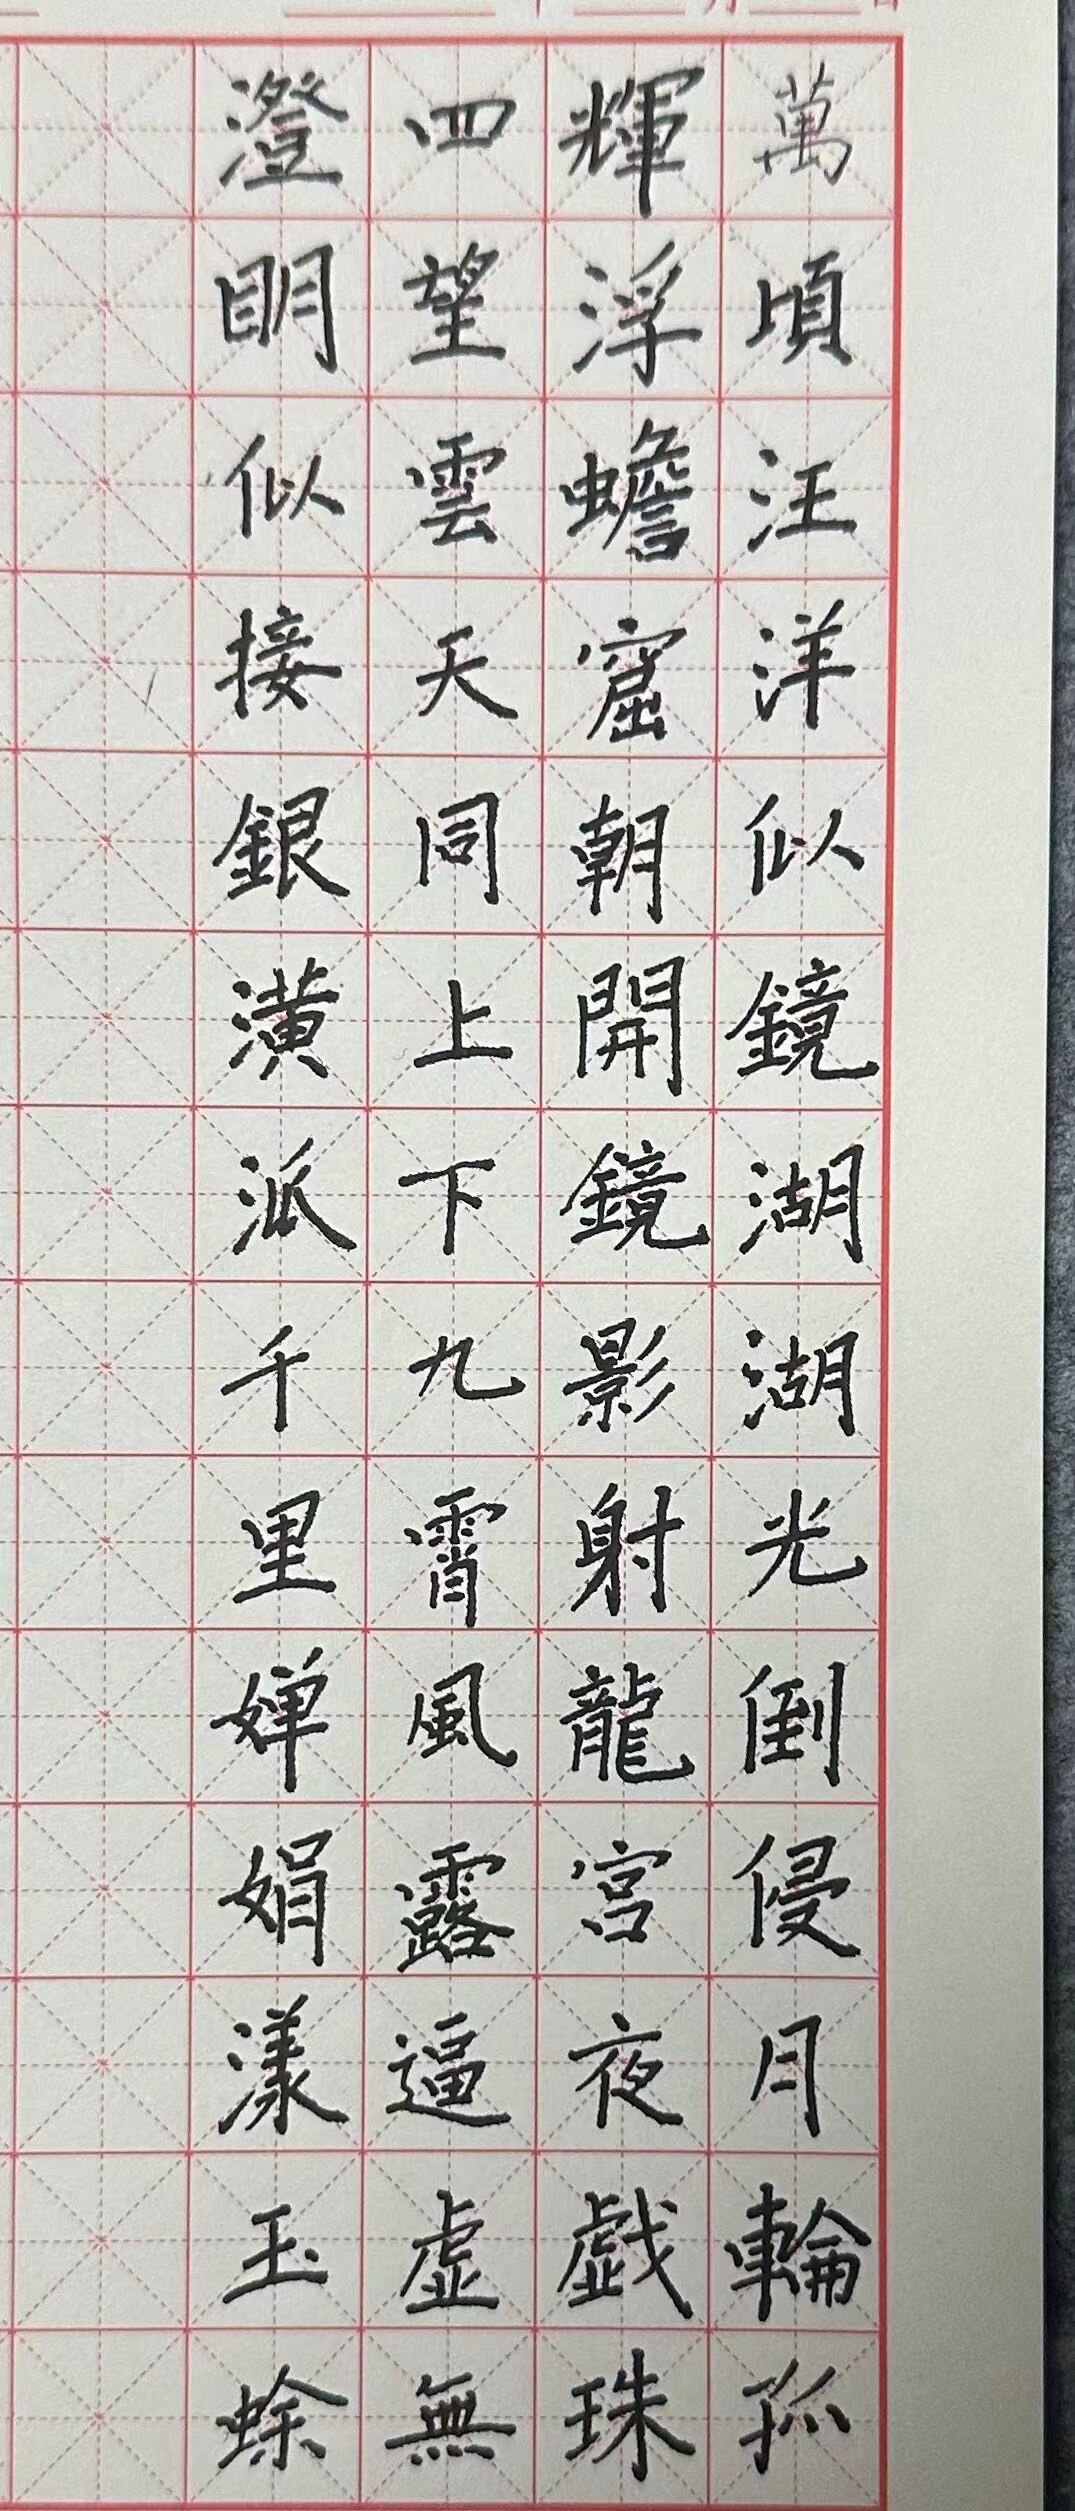 萬頃汪洋似鏡湖湖光倒侵月輪孤
輝浮蟾窟朝開鏡影射龍宮夜戯珠
四望雲天同上下九霄風露逼虛無
澄明似接銀潢派千里婵娟漾玉蜍